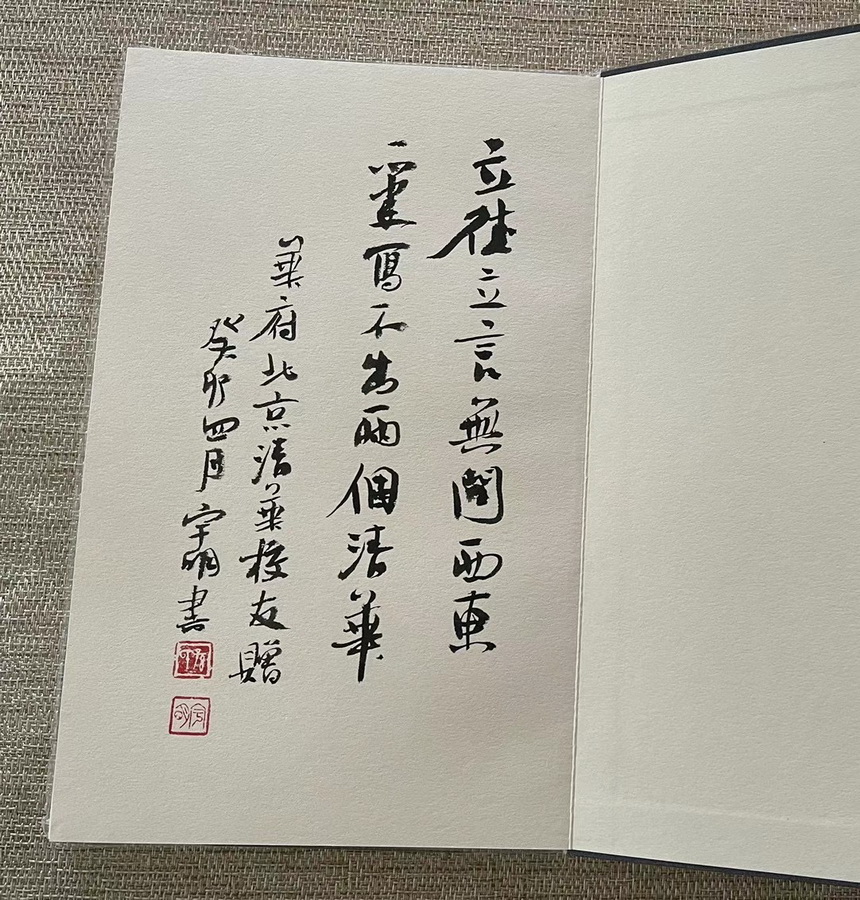 立德立言無問西東
一筆寫不出兩個清華
華府北京清華校友贈
癸卯四月宇明書